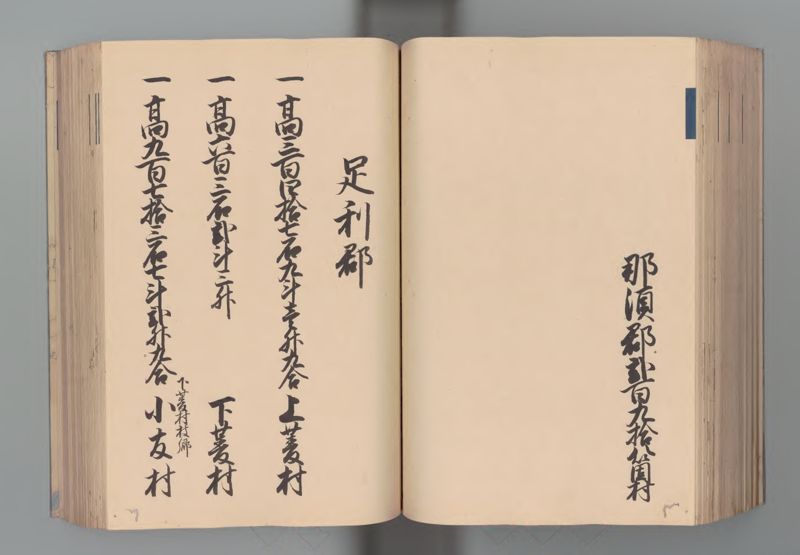 那須郡弐百九拾八箇村
足利郡
一高三百四拾七石九斗壱升九合 上菱村
一高六百三石弐斗三升 下菱村
下菱村枝郷
一高九百七拾三石七斗弐升九合 小友村